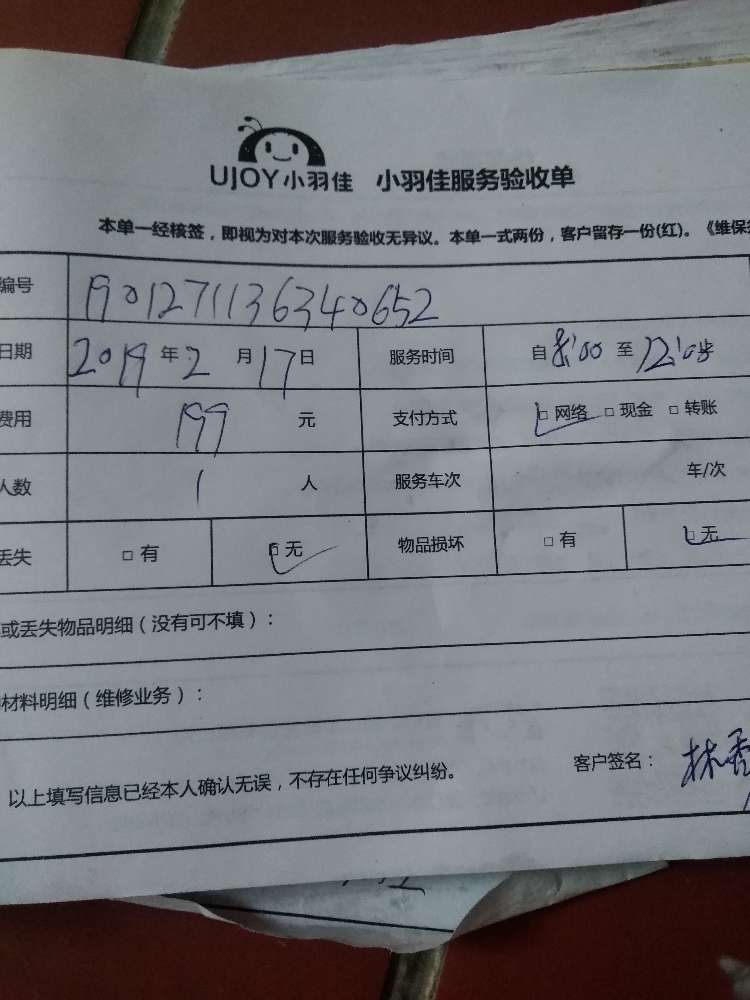 UJOY小羽佳 小羽佳服务验收单
本单一经核签，即视为对本次服务验收无异议。本单一式两份，客户留存一份(红)。《维保
编号 1901271136340652
日期 2019 年 2 月 17 日 服务时间 自 8:00 至 12:00
费用 199 元 支付方式 □ 网络 □ 现金 □ 转账
人数 1 人 服务车次 车/次
丢失 □ 有 □ 无 物品损坏 □ 有 □ 无
或丢失物品明细（没有可不填）：
材料明细（维修业务）：
以上填写信息已经本人确认无误，不存在任何争议纠纷。 客户签名： 林